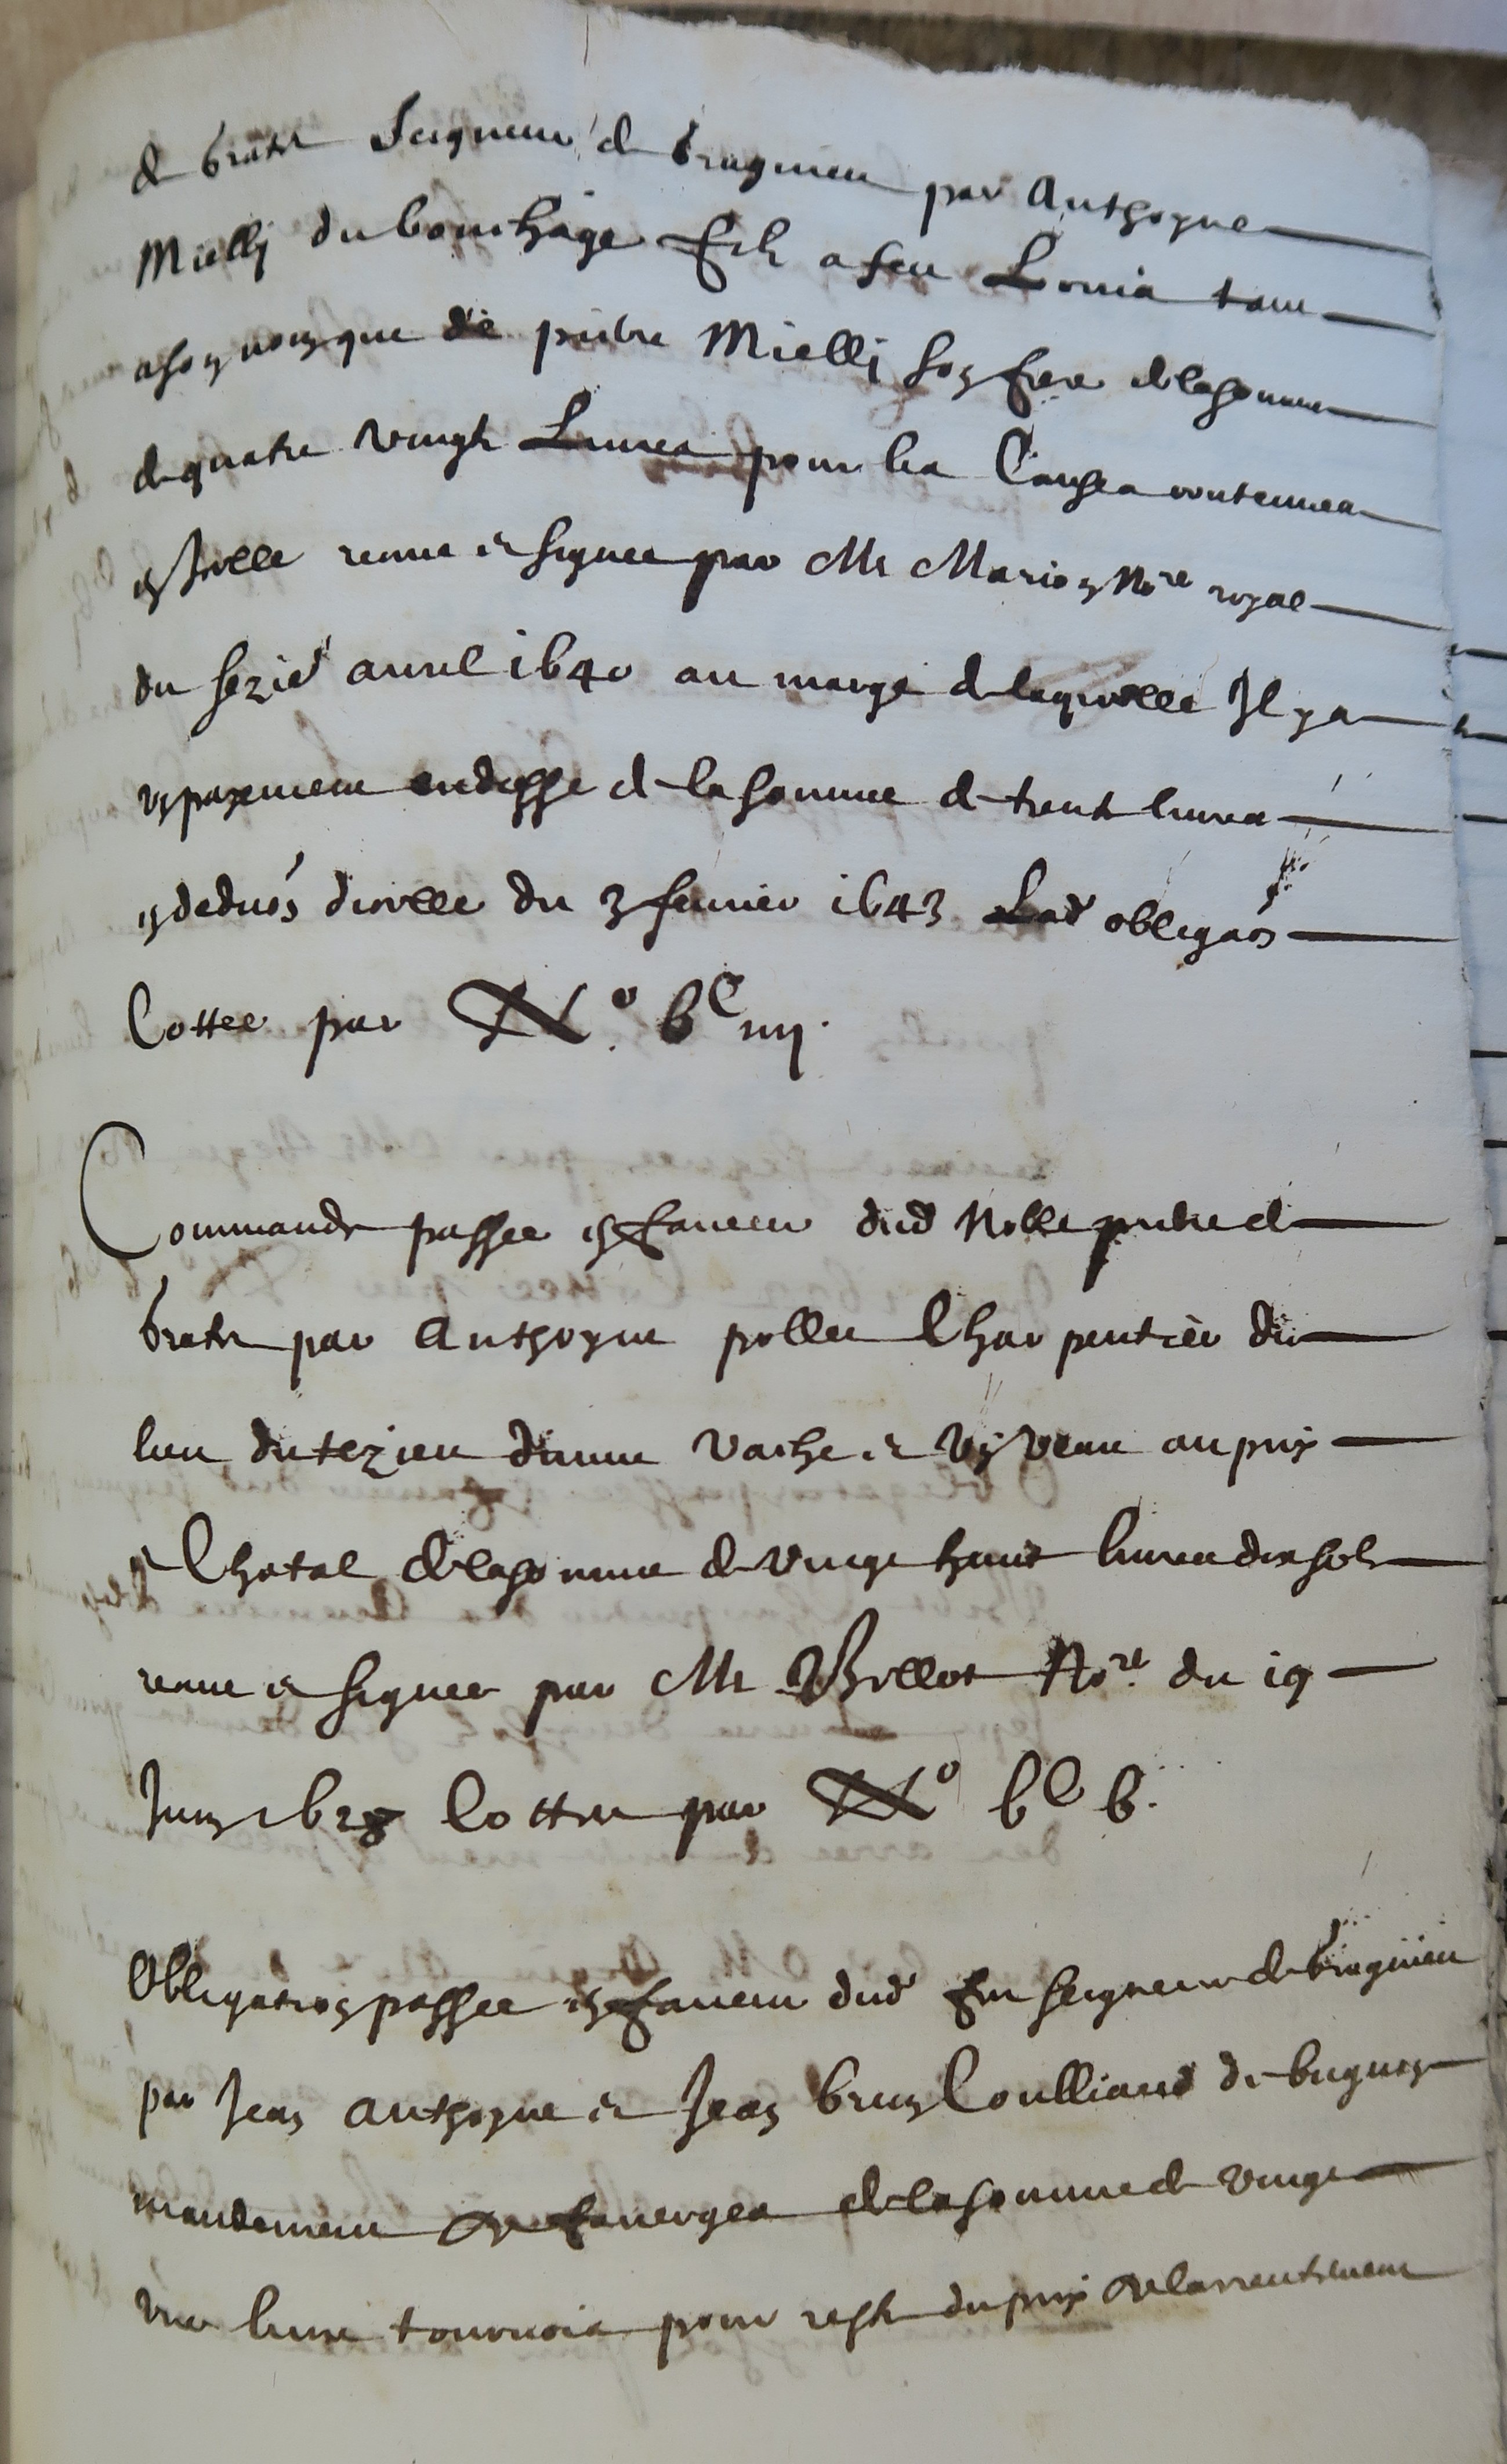 de bratet Seigneur de bragnieu par Anthoyne
Mielly du bouchage filz a feu Louis tant
a son nom que de pierre Mielly son frere de la somme
de quatre vingt Livres pour les Causes contenues
en Icelle receue et signee par Me Marion No.re royal
du sezie avril 1640 au marge de laquelle Il y a
un payement endossé de la somme de trente livres
en deduon dicelle du 3 fevrier 1643 Lad obligaon
Cottee par N.o bC iiij.
Commande passee en faveur dud Noble pierre de
bratet par Anthoyne pollet Charpentier du
lieu du tezieu dunne vache et un veau au prix
et Chatal de la somme de vingt huict livres dix solz
receue et signee par Me Billot No.re du 19
Juin 1628 Cottee par N.o bC b.
Obligation passee en faveur dud feu seigneur de bragnieu
par Jean Anthoyne et Jean brun Coulliard de
mandement de faverges de la somme de vingt
une livre tournois pour reste du prix de larrentement